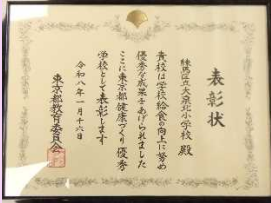 表彰状
練馬区立大泉北小学校 殿
貴校は学校給食の向上に努め
優秀な成果をあげられました
ここに東京都健康づくり優秀
学校として表彰します
令和八年一月十六日
東京都教育委員会